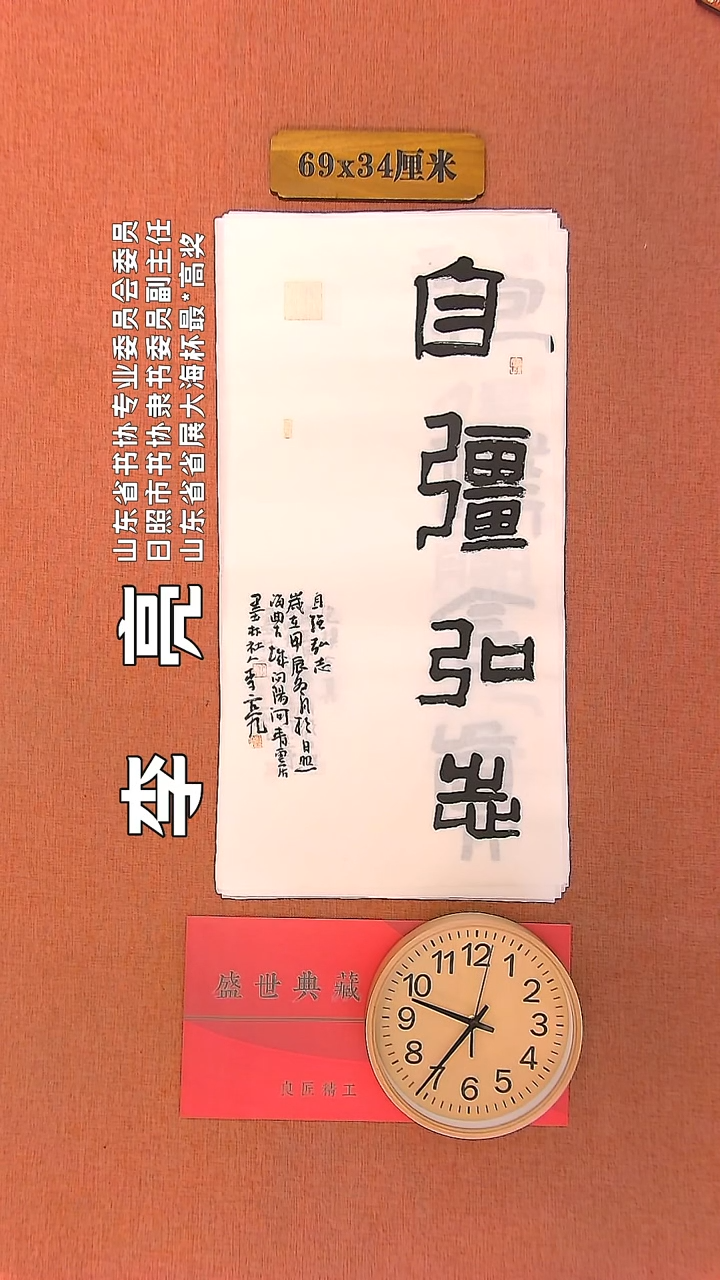 69x34厘米
山东省书协专业委员会委员
日照市书协隶书委员副主任
山东省省展大海杯最*高奖
李亮
自彊弘志
自强弘志
歲在甲辰冬月於日照
海曲古城问陽河青雲片
盛世典藏
良匠精工
12
1
2
3
4
5
6
7
8
9
10
11